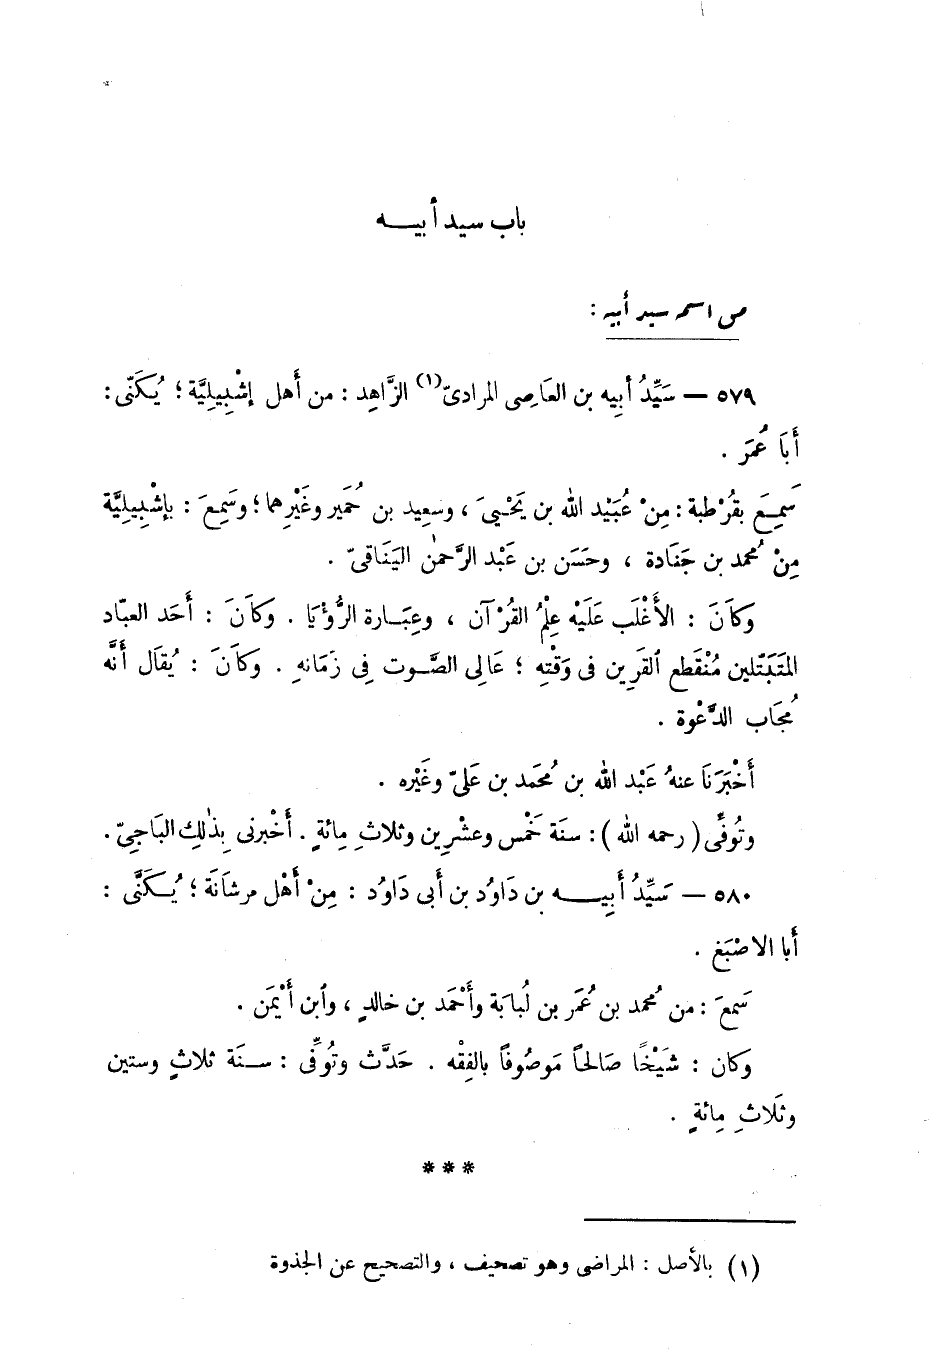 باب سيد أبيــه
من اسمه سيد أبيه :
٥٧٩ — سَيِّدُ أبِيه بن العَاصِى المرادىّ(١) الزَّاهِد : من أَهل إشْبِيلِيَّة ؛ يُكَنّى :
أَبَا عُمَر .
سَمِعَ بقُرْطبة : مِنْ عُبَيْد الله بن يَحْيىَ ، وسعِيد بن خُمَير وغَيْرِهما ؛ وسَمِعَ : بإشْبِيلِيَّة
مِنْ مُحمد بن جَنَادة ، وحَسَن بن عَبْد الرَّحمٰن اليَنَاقىّ .
وكاَنَ : الأَغْلَب عَلَيْه عِلْمُ القُرْآن ، وعِبَــارة الرُّؤْيَا . وكاَنَ : أَحَد العبّاد
المَتَبَتّلين مُنْقَطع القَرِين فى وَقْتِه ؛ عَالِى الصَّــوت فِى زَمَانهِ . وكاَنَ : يُقال أَنَّه
مُجَاب الدَّعْوة .
أَخْبَرَنَا عنهُ عَبْد الله بن مُحمَد بن عَلىّ وغَيْره .
وتُوفِّى ( رحمه الله ) : سنَة خَمْس وعشْرِين وثلاثِ مِائةٍ . أَخْبرنى بِذٰلِك البَاجِىّ .
٥٨٠ — سَيِّدُ أَبِيــه بن دَاوُد بن أَبى دَاوُد : مِنْ أَهْل مرشاَنَة ؛ يُـكَنَّى :
أَبا الاصْبَغ .
سَمعَ : من مُحمد بن عُمَر بن لُبابَة وأَحْمَد بن خالدٍ ، وابن أَيْمَن .
وكان : شَيْخًا صَالحاً مَوصُوفاً بالفِقْه . حَدَّث وتُوُفِّى : سـنَة ثلاثٍ وستين
وثَلَاثِ مِائةٍ .
***
(١) بالأصل : المراضى وهو تصحيف ، والتصحيح عن الجذوة